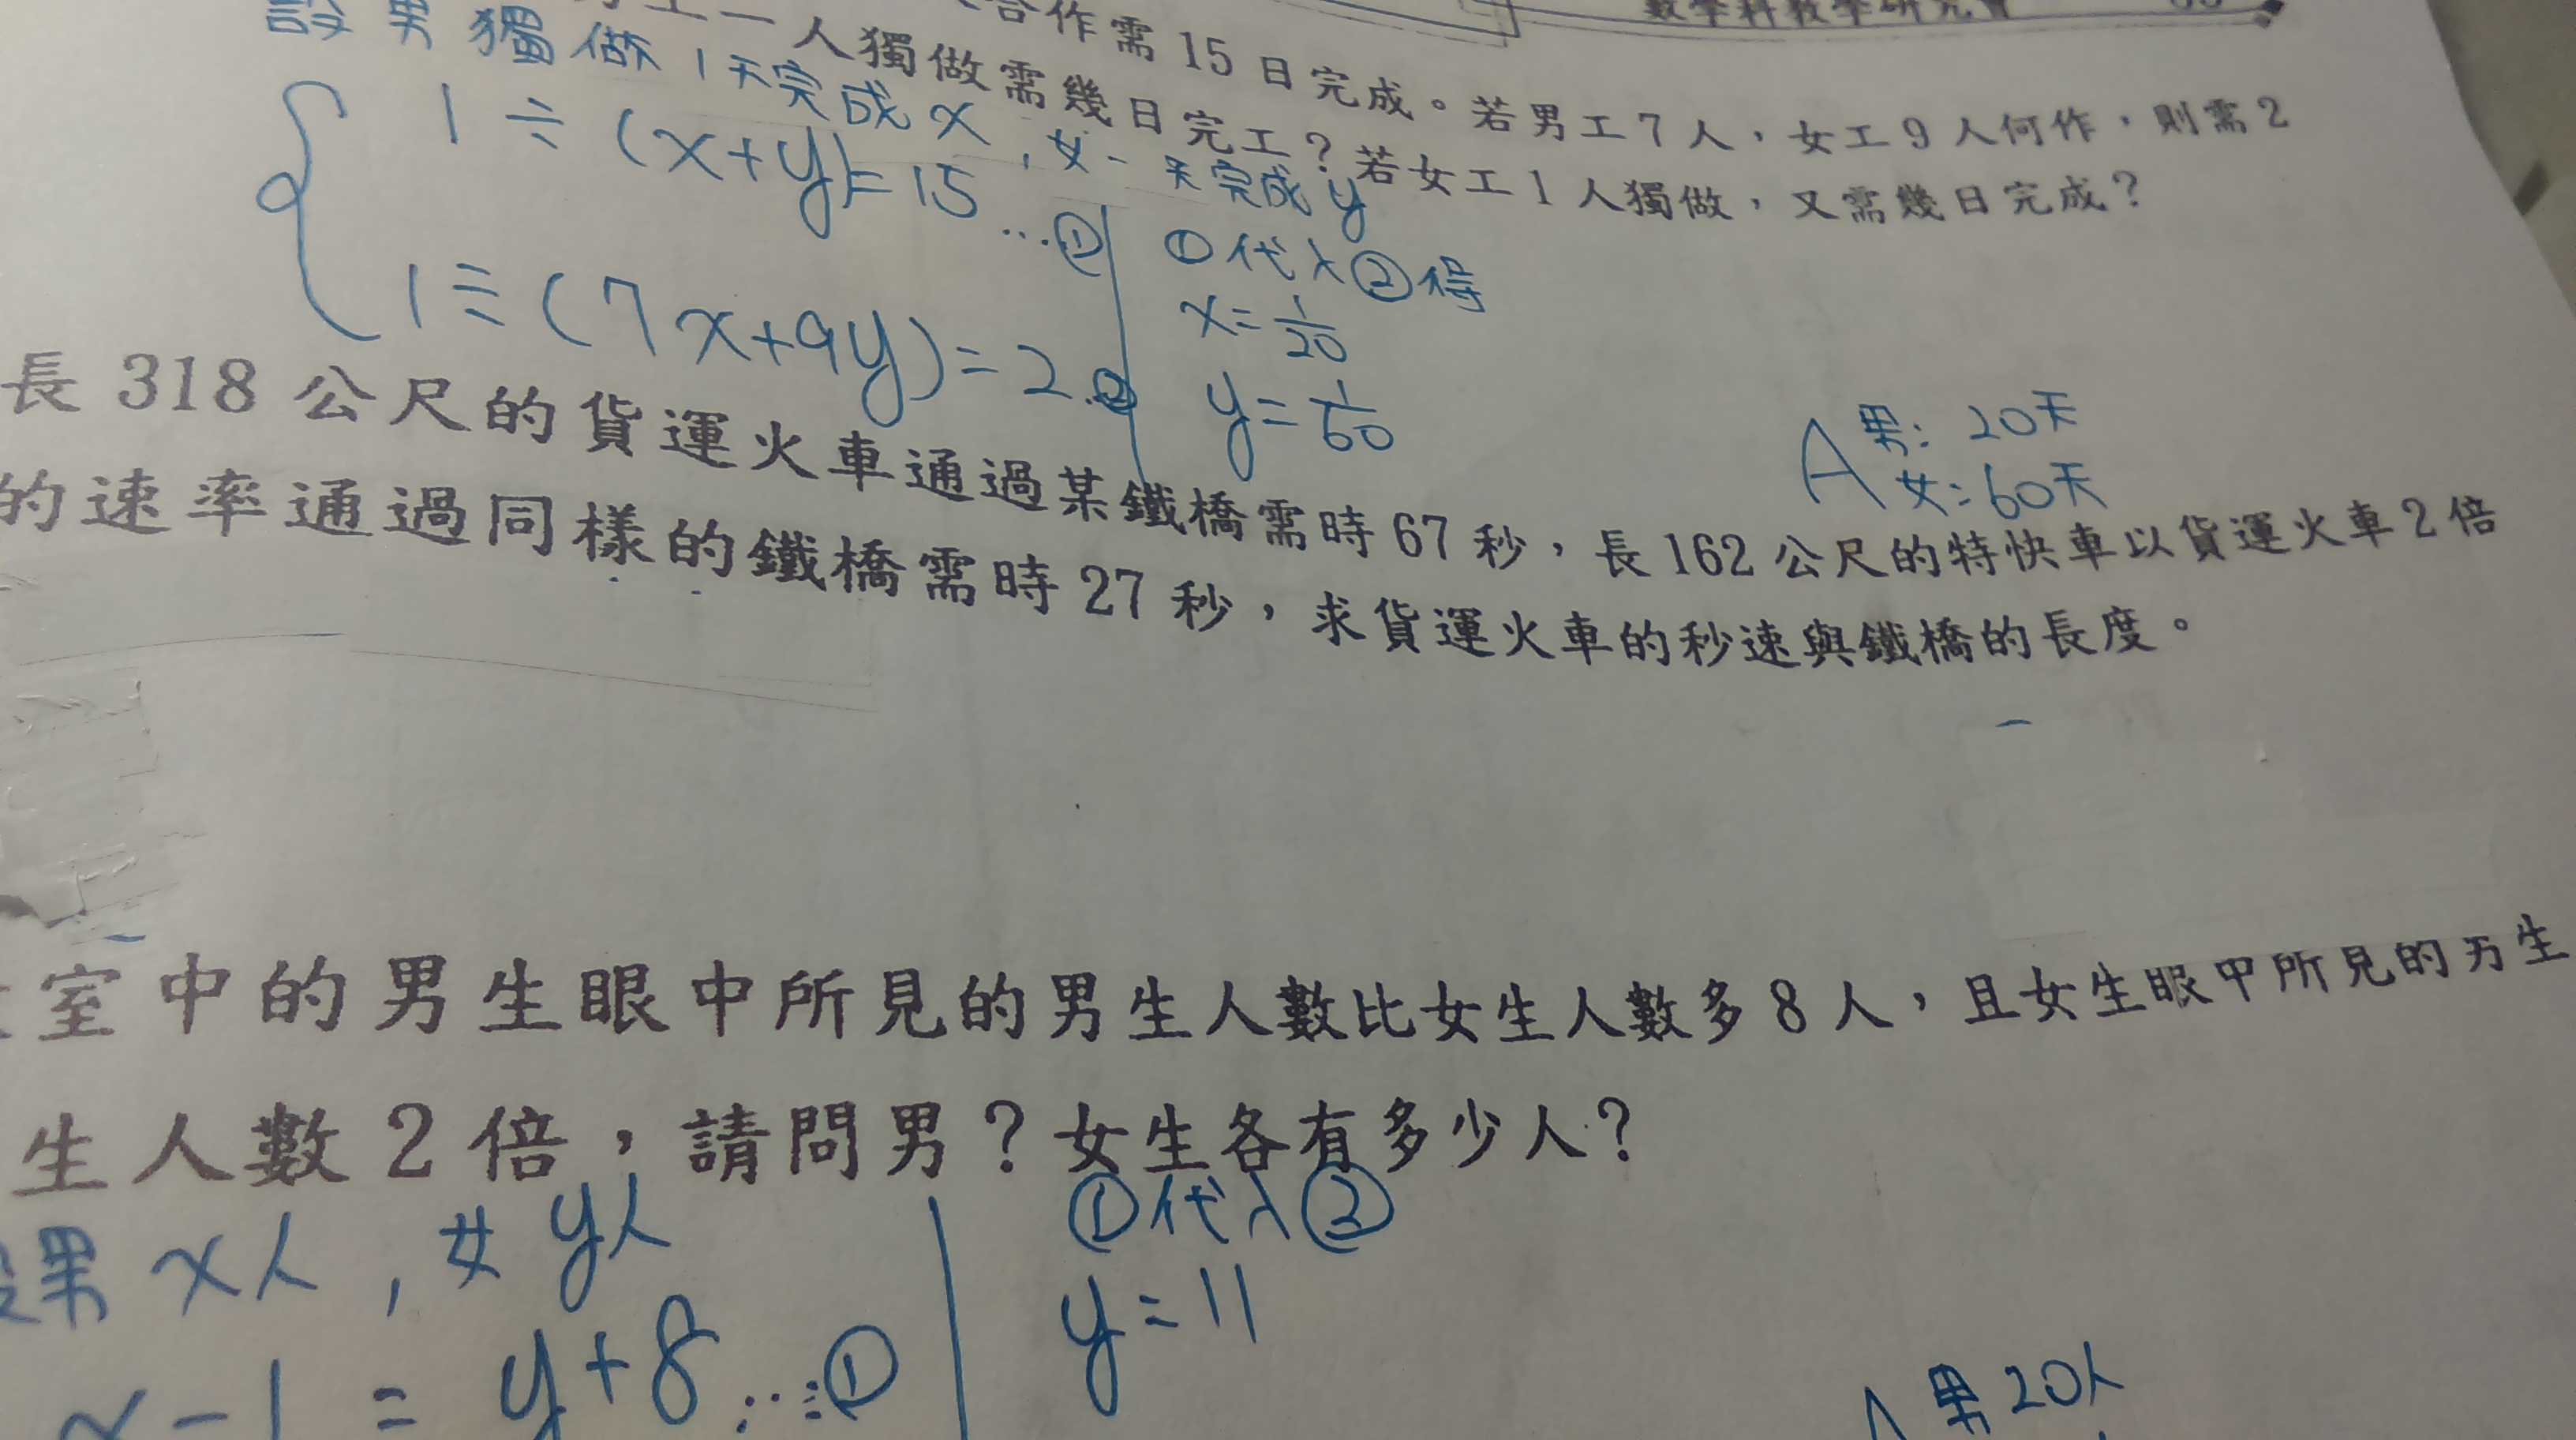 合作需15日完成。若男工7人,女工9人何作,則需2
一人獨做需幾日完工?若女工1人獨做,又需幾日完成?
設男獨做1天完成x,女一天完成y
1÷(x+y)=15…①
1÷(7x+9y)=2..②
①代入②得
x=1/20
y=1/60
A男:20天
女:60天
長318公尺的貨運火車通過某鐵橋需時67秒,長162公尺的特快車以貨運火車2倍
的速率通過同樣的鐵橋需時27秒,求貨運火車的秒速與鐵橋的長度。
室中的男生眼中所見的男生人數比女生人數多8人,且女生眼中所見的男生
生人數2倍,請問男?女生各有多少人?
男x人,女y人
x-1=y+8…①
①代入②
y=11
男20人